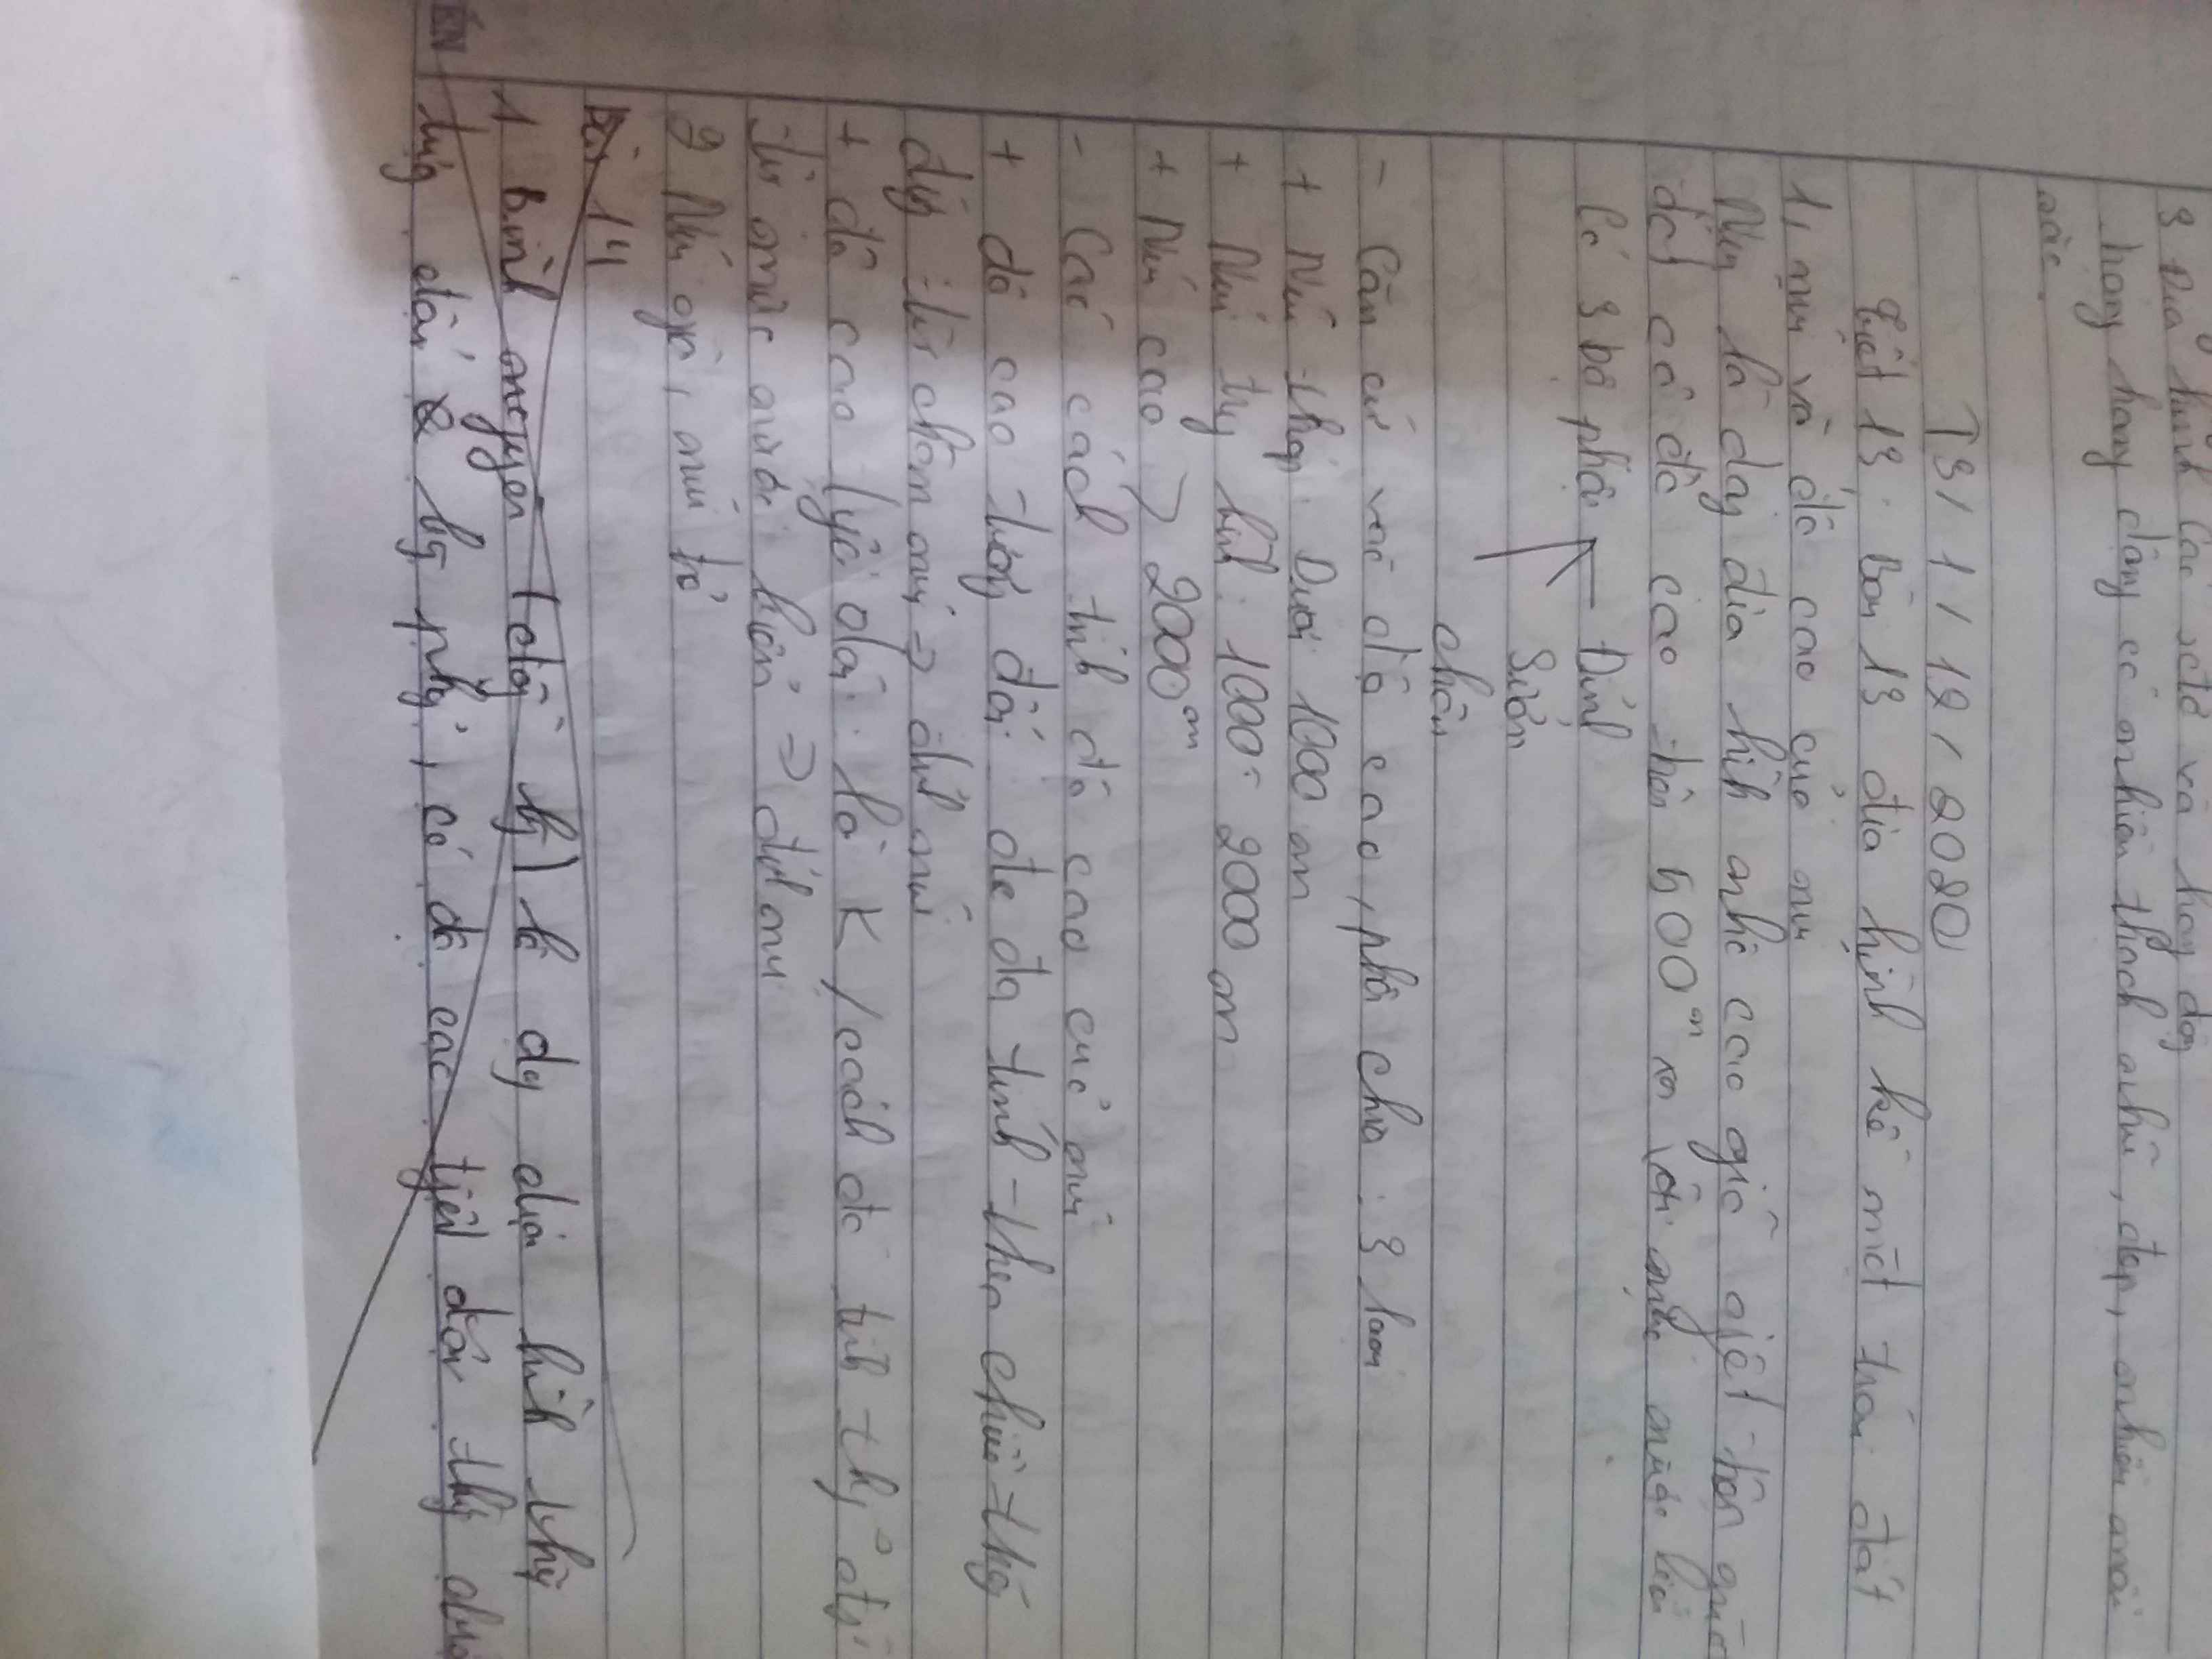 3 Địa hình Cac xctơ và hang động
hang hang động có nhiên thạch nhũ, đẹp, nhiên
sắc.
T3/ 1 / 12 / 2020
tiết 13: Bài 13 địa hình bề mặt trái đất
1, núi và độ cao của núi
Núi là dạg địa hình nhô cao giõ riệt trên
đất có độ cao trên 500m so với nước biển
Có 3 bộ phận Đỉnh
Sườn
chân
- Căn cứ vào độ cao, phân chia: 3 loại
+ Núi thấp: Dưới 1000 m
+ Núi trg bình: 1000 - 2000 m
+ Núi cao > 2000m
- Các cách tính độ cao của núi
+ độ cao tương đối: đo đạ tính theo chiều thẳg
đứg từ chân núi => đỉnh núi
+ độ cao tyệt đối: là k/cách đo tính thg đứ
từ mức nước biển => đỉnh núi
2 Núi già, núi trẻ
Bài 14
1 Bình nguyên (đồg bg) là dg địa hình thấp
tươg đối & bg phẳg, có độ cao tyệt đối thg dưới